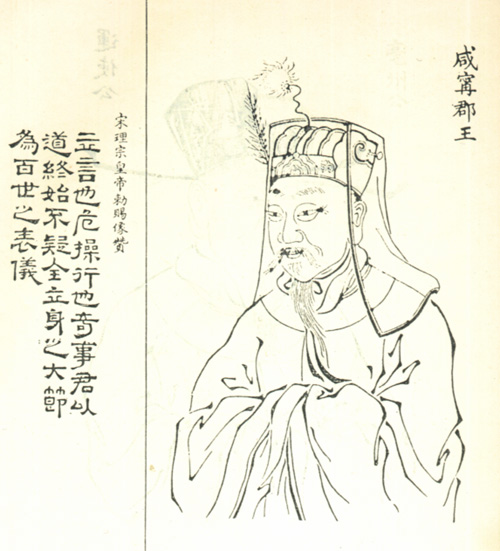 咸寗郡王
宋理宗皇帝勅賜像贊
立言也危操行也奇事君以
道終始不疑全立身之大節
為百世之表儀